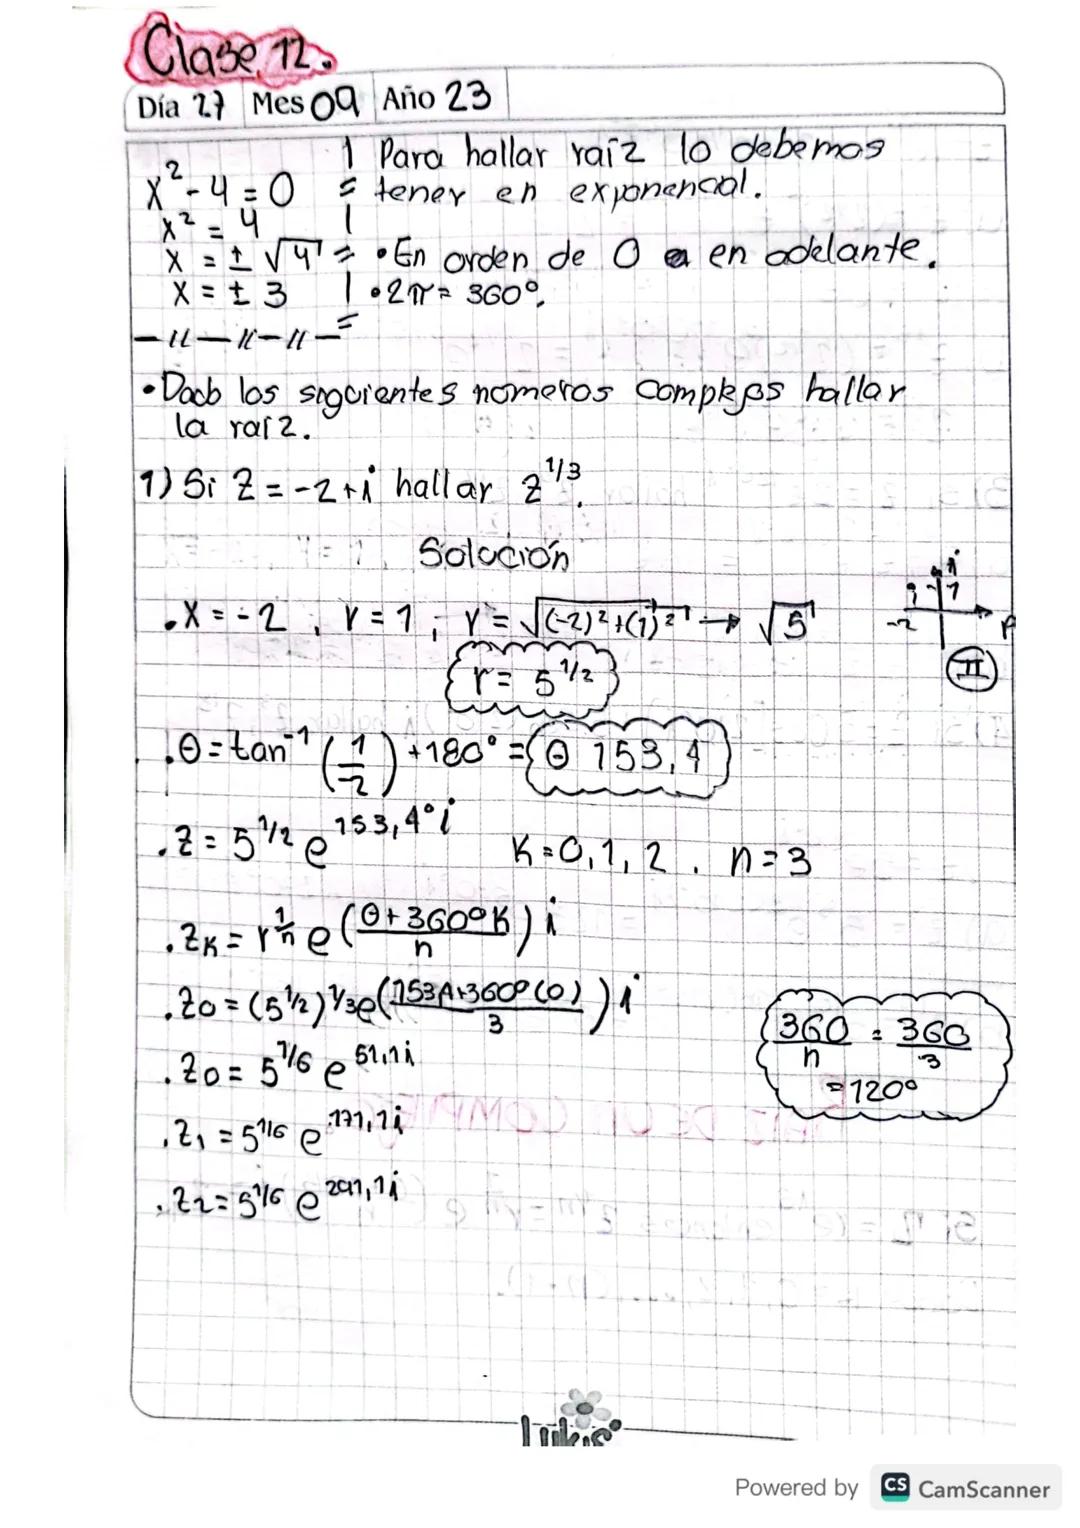 Clase 12.
Día 27 Mes 09 Año 23
x² - 4 = 0
x² = 4
x = ± √4
x = ± 3
Para hallar raíz lo debemos
tener en exponencial.
• En orden de 0 a en adelante.
• 2π = 360°.
• Dado los siguientes números complejos hallar
la raíz.
1) Si Z = -2+i hallar z^1/3.
Solución
• X = -2, Y = 1, r = √(-2)²+(1)² → √5
r = 5^1/2
i
1
-2
II
• θ = tan⁻¹ (1/-2) + 180° = θ 153,4
• Z = 5^1/2 e^153,4°i K=0,1,2. n=3
• ZK = r^1/n e^((θ+360°K)/n) i
• Z0 = (5^1/2)^1/3 e^((153,4+360°(0))/3) i
• Z0 = 5^1/6 e^51,1i
• Z1 = 5^1/6 e^171,1i
• Z2 = 5^1/6 e^291,1i
360/n = 360/3
= 120°
Lukis
Powered by CS CamScanner